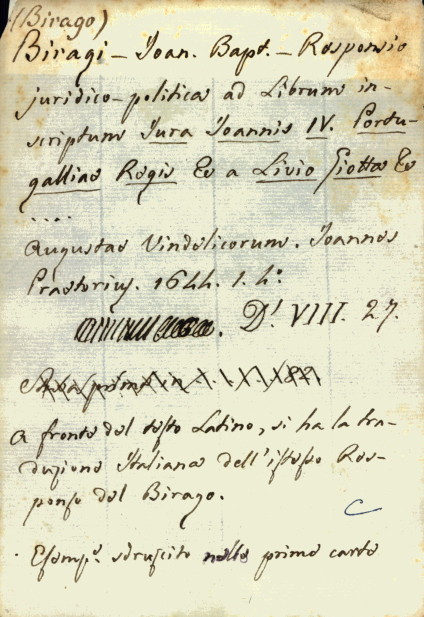 (Birago)
Biragi - Joan. Bapt. - Responsio
juridico-politica ad Librum in-
scriptum Jura Joannis IV. Portu-
galliae Regis &c a Livio Giotta &c
....
Augustae Vindelicorum. Joannes
Praetorius. 1644. 1. 4º.
D! VIII. 27.
A fronte del testo Latino, si ha la tra-
duzione Italiana dell'istesso Res-
ponso del Birago.
C
Esemp.e sdruscito nelle prime carte